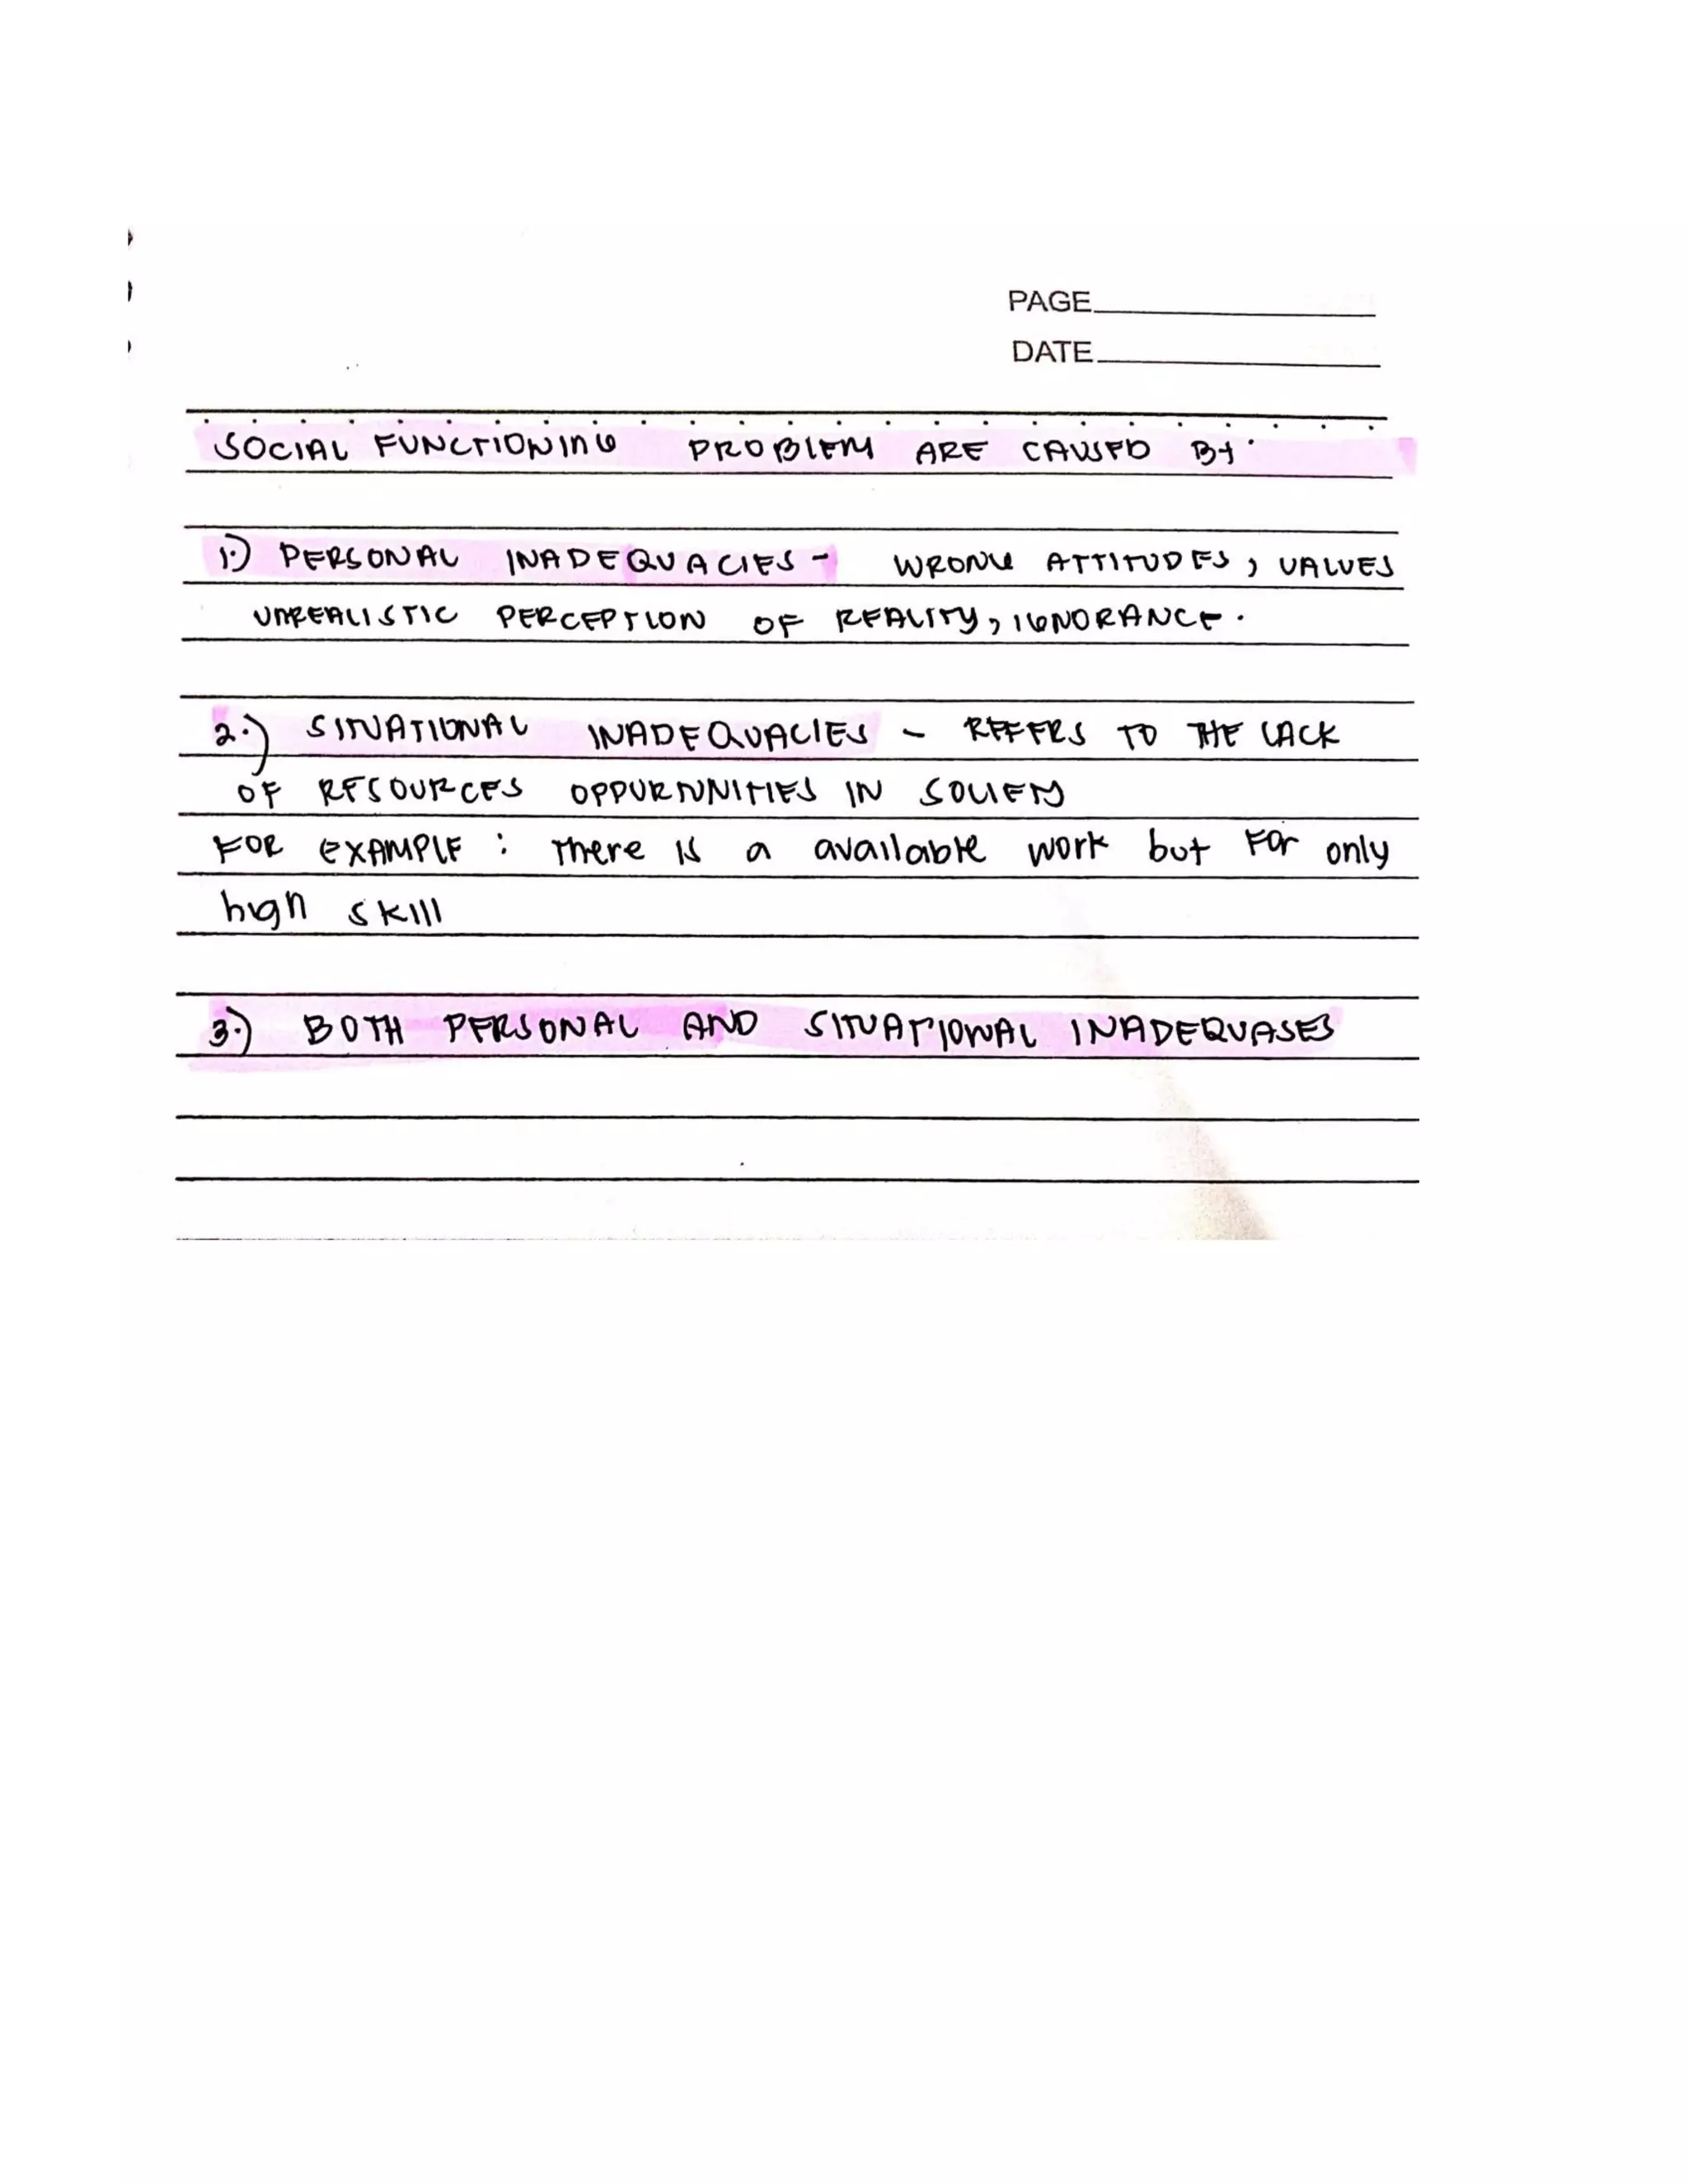 PAGE
DATE
SOCIAL FUNCTIONING PROBLEM ARE CAUSED BY
1.) PERSONAL INADEQUACIES - WRONG ATTITUDES, VALUES
UNREALISTIC PERCEPTION OF REALITY, IGNORANCE.
2.) SITUATIONAL INADEQUACIES - REFERS TO THE LACK
OF RESOURCES OPPURTUNITIES IN SOCIETY
FOR EXAMPLE : There is a available work but for only
high skill
3.) BOTH PERSONAL AND SITUATIONAL INADEQUASES